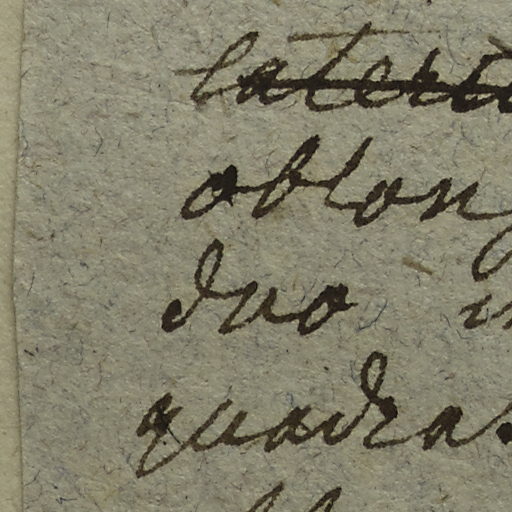 lateri
oblong
duo
quadra